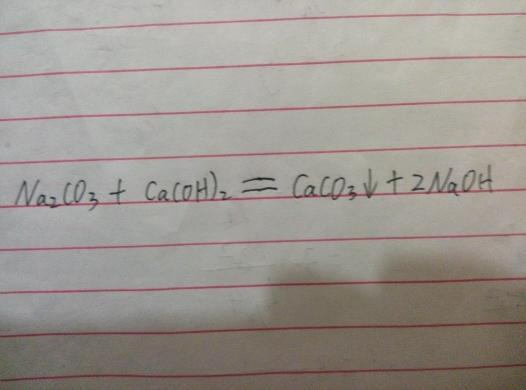 Na₂CO₃ + Ca(OH)₂ = CaCO₃↓ + 2NaOH